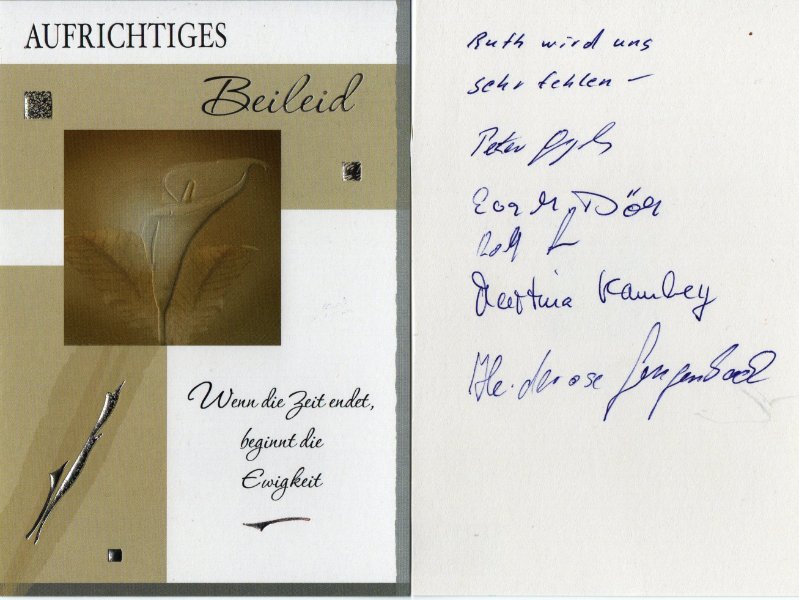 AUFRICHTIGES
Beileid
Wenn die Zeit endet,
beginnt die
Ewigkeit
Ruth wird uns
sehr fehlen –
Peter
Eva M. Dör
Rolf
Martina Kambey
Heiderose Gengenbach